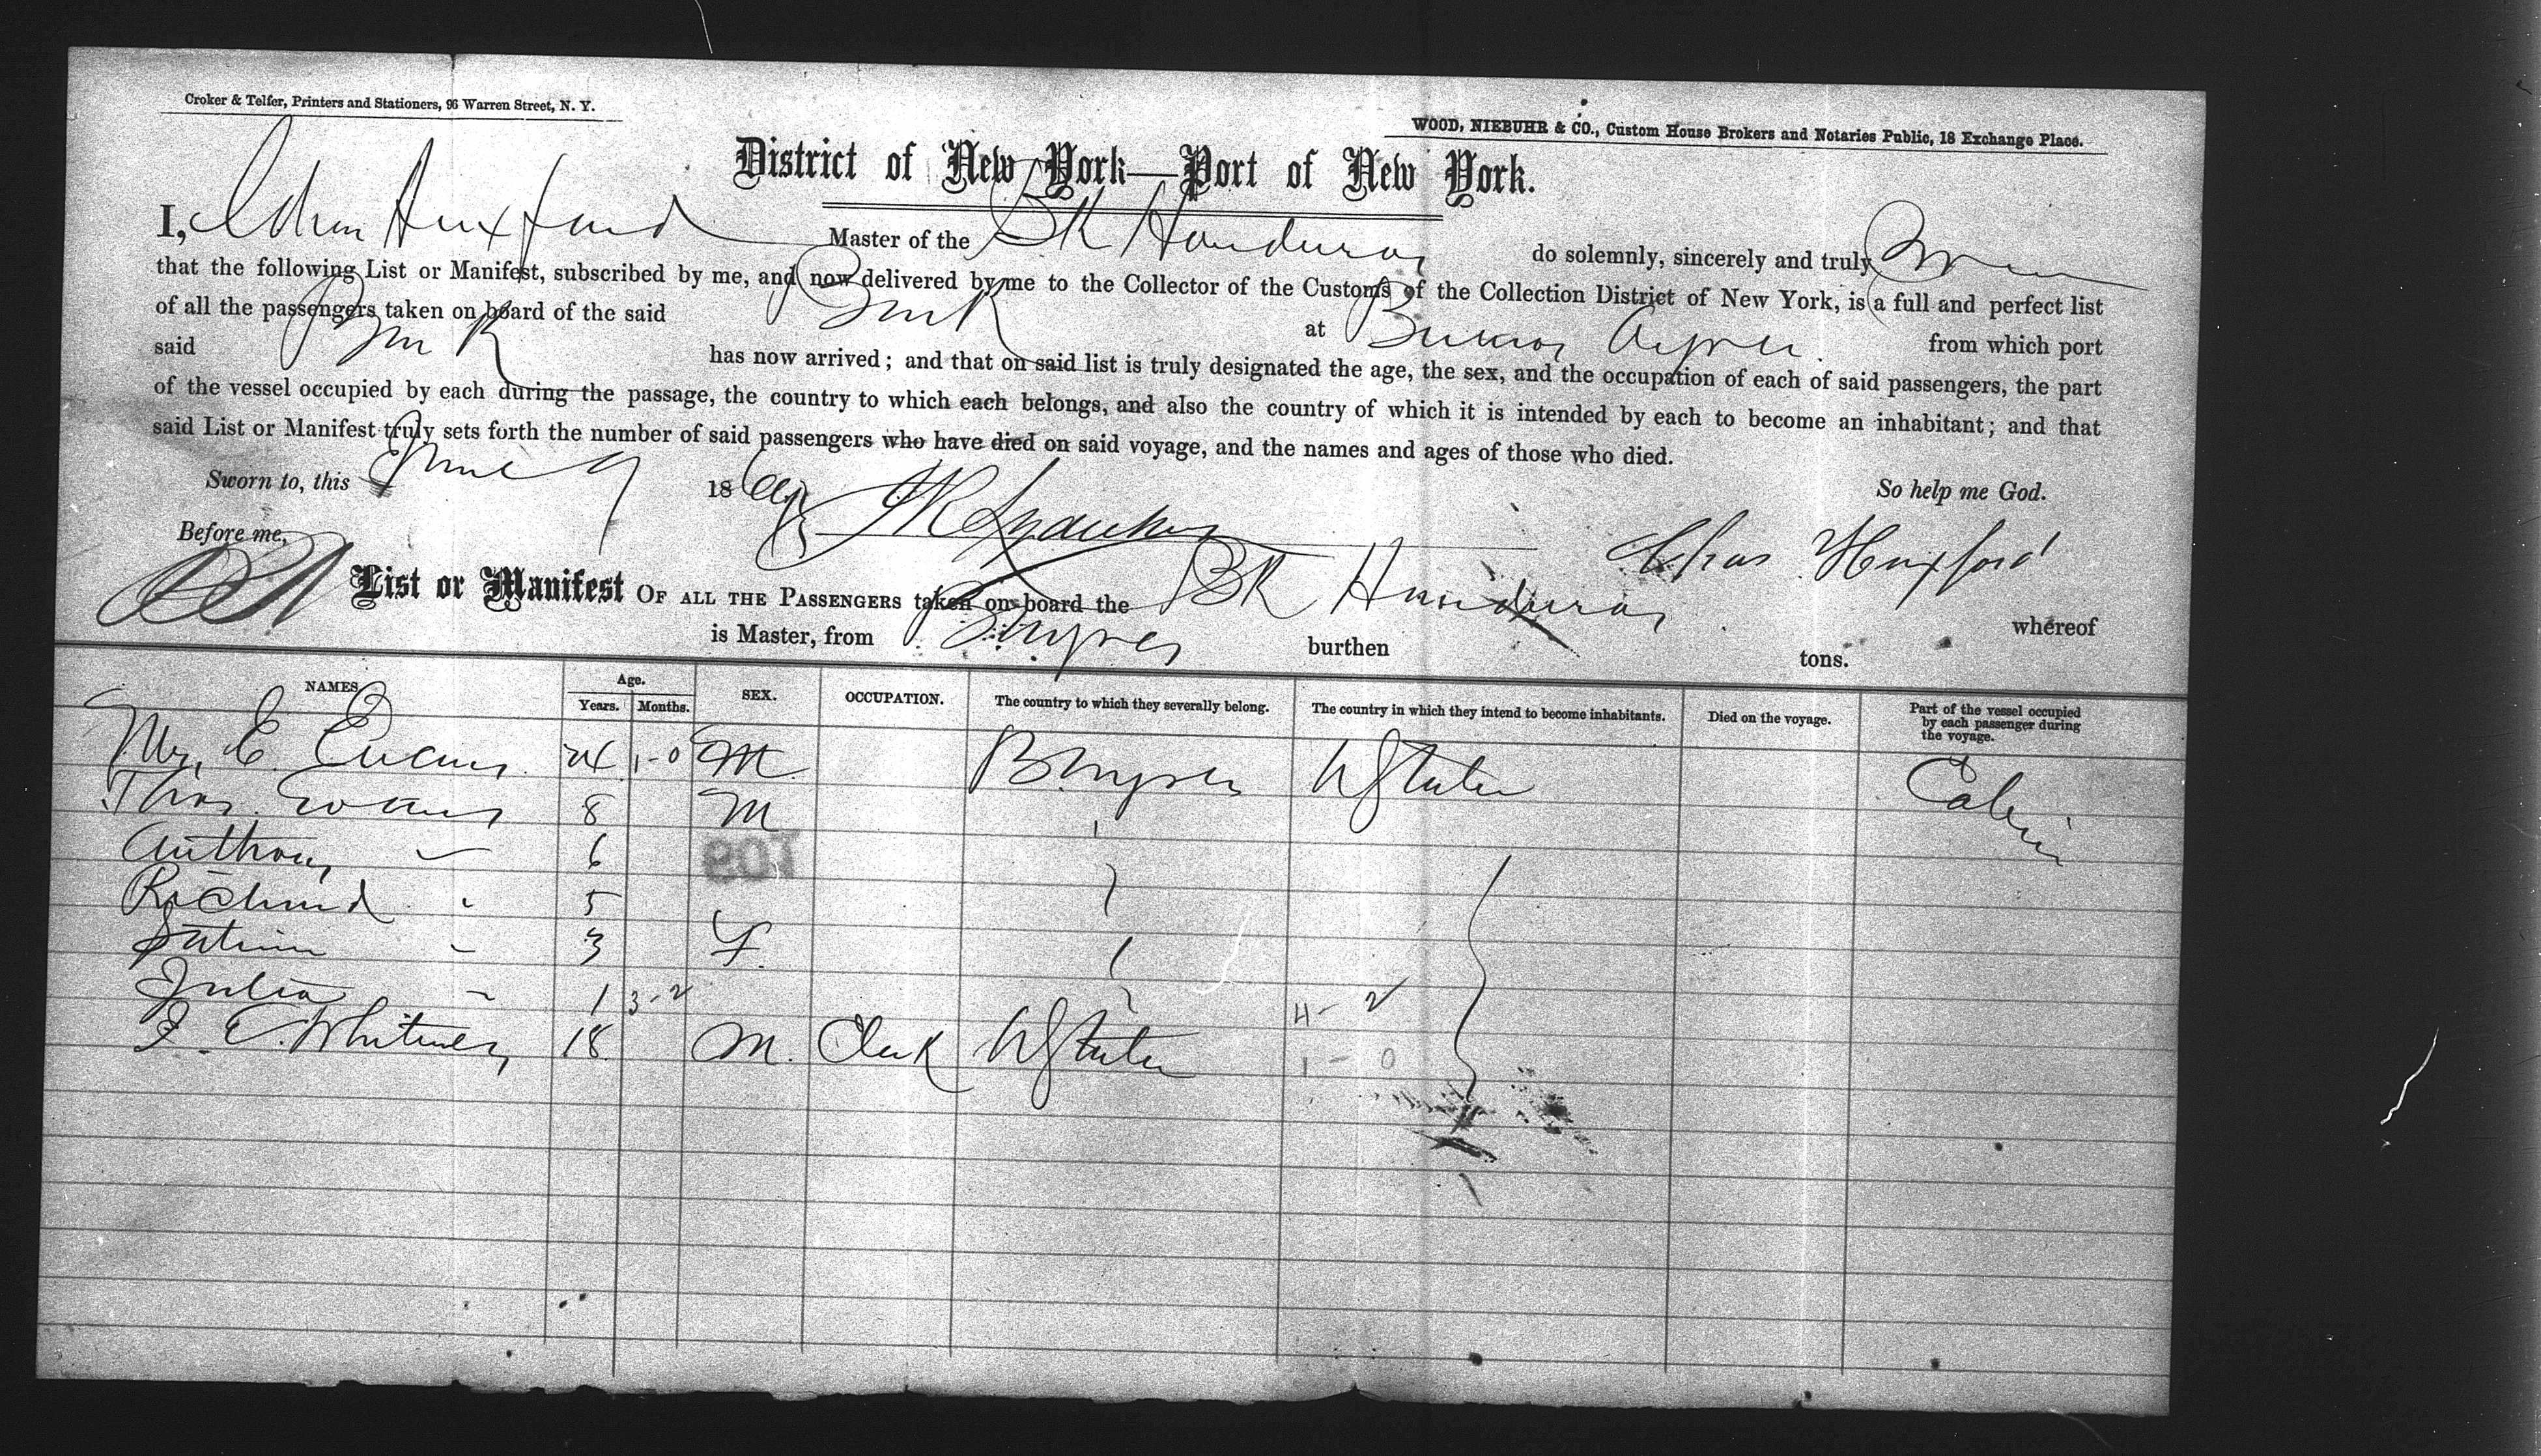 Croker & Telfer, Printers and Stationers, 96 Warren Street, N. Y.
WOOD, NIEBUHR & CO., Custom House Brokers and Notaries Public, 18 Exchange Place.
District of New York—Port of New York.
I, Huxford Master of the BK Honduras do solemnly, sincerely and truly
that the following List or Manifest, subscribed by me, and now delivered by me to the Collector of the Customs of the Collection District of New York, is a full and perfect list
of all the passengers taken on board of the said Bark at Buenos Ayres from which port
said Bark has now arrived; and that on said list is truly designated the age, the sex, and the occupation of each of said passengers, the part
of the vessel occupied by each during the passage, the country to which each belongs, and also the country of which it is intended by each to become an inhabitant; and that
said List or Manifest truly sets forth the number of said passengers who have died on said voyage, and the names and ages of those who died.
Sworn to, this June 9 1869 So help me God.
Before me, Chas Huxford
List or Manifest OF ALL THE PASSENGERS taken on board the BK Honduras whereof
is Master, from B Ayres burthen tons.
NAMES. Age. Years. Months. SEX. OCCUPATION. The country to which they severally belong. The country in which they intend to become inhabitants. Died on the voyage. Part of the vessel occupied by each passenger during the voyage.
E. Evans 24 1-0 M B Ayres U States Cabin
Thos. Evans 8 M
Anthony " 6
Richard " 5
" 3 F.
Julia " 1 3-2 4-2
Whitney 18 M. Clerk U States 1-0